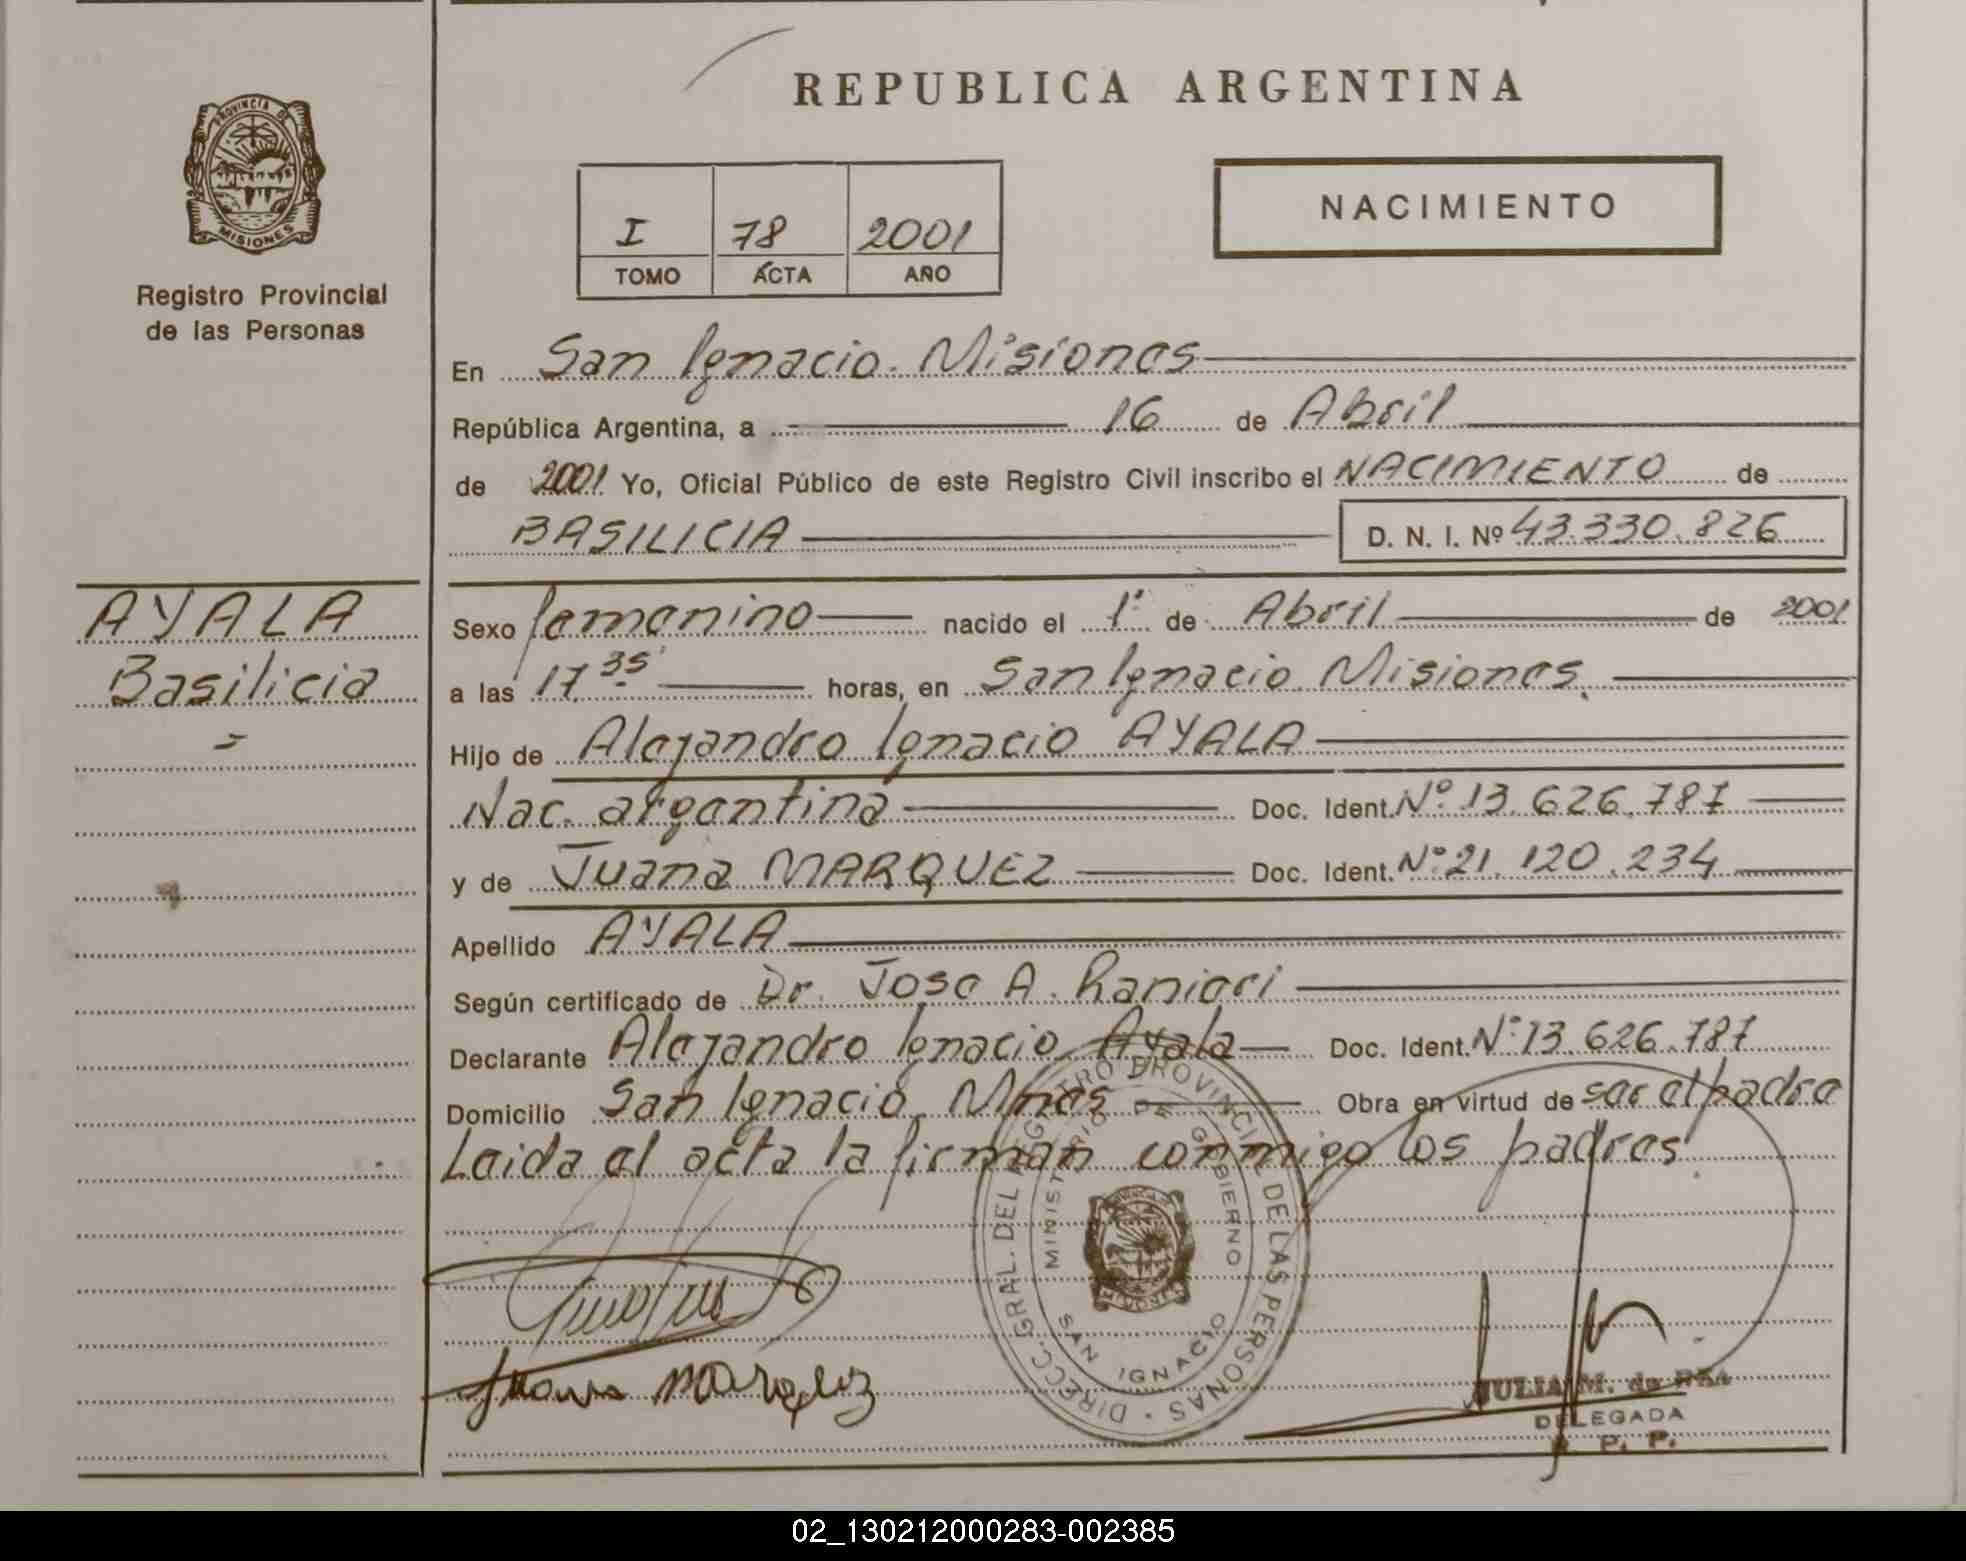 REPUBLICA ARGENTINA
PROVINCIA DE
MISIONES
Registro Provincial
de las Personas
I 78 2001
TOMO ACTA AÑO
NACIMIENTO
En San Ignacio. Misiones
República Argentina, a 16 de Abril
de 2001 Yo, Oficial Público de este Registro Civil inscribo el NACIMIENTO de
BASILICIA D. N. I. Nº 43.330.826
AYALA
Basilicia
Sexo femenino nacido el 1º de Abril de 2001
a las 17.35 horas, en San Ignacio. Misiones.
Hijo de Alejandro Ignacio AYALA
Nac. argentina Doc. Ident. Nº 13.626.787
y de Juana MARQUEZ Doc. Ident. Nº 21.120.234
Apellido AYALA
Según certificado de Dr. Jose A. Ranieri
Declarante Alejandro Ignacio Ayala Doc. Ident. Nº 13.626.787
Domicilio San Ignacio. Mnes Obra en virtud de ser el padre
Leida el acta la firman conmigo los padres.
DIRECC. GRAL. DEL REGISTRO PROVINCIAL DE LAS PERSONAS
MINISTERIO DE GOBIERNO
SAN IGNACIO
Juana Marquez
JULIA M. de
DELEGADA
R. P. P.
02_130212000283-002385